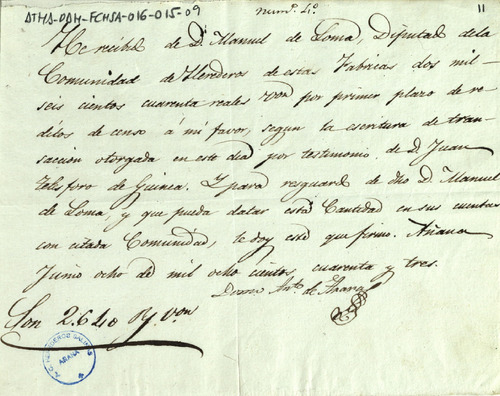 ATHA-DAH-FCHSA-016-015-09
num.º 4.º
11
He recibido de D. Manuel de Loma, Diputad. de la
Comunidad de Herederos de estas Fabricas dos mil
seis cientos cuarenta reales von por primer plazo de re-
ditos de censo á mi favor, segun la escritura de tran-
saccion otorgada en este dia por testimonio de D. Juan
telesforo de Guinea. Y para resguardo de dho D. Manuel
de Loma, y que pueda datar esta Cantidad en sus cuentas
con citada Comunidad, le doy este que firmo. Añana
Junio ocho de mil ocho cientos cuarenta y tres.
Ant.º de
Son 2.640 R.s von
HEREDEROS
AÑANA